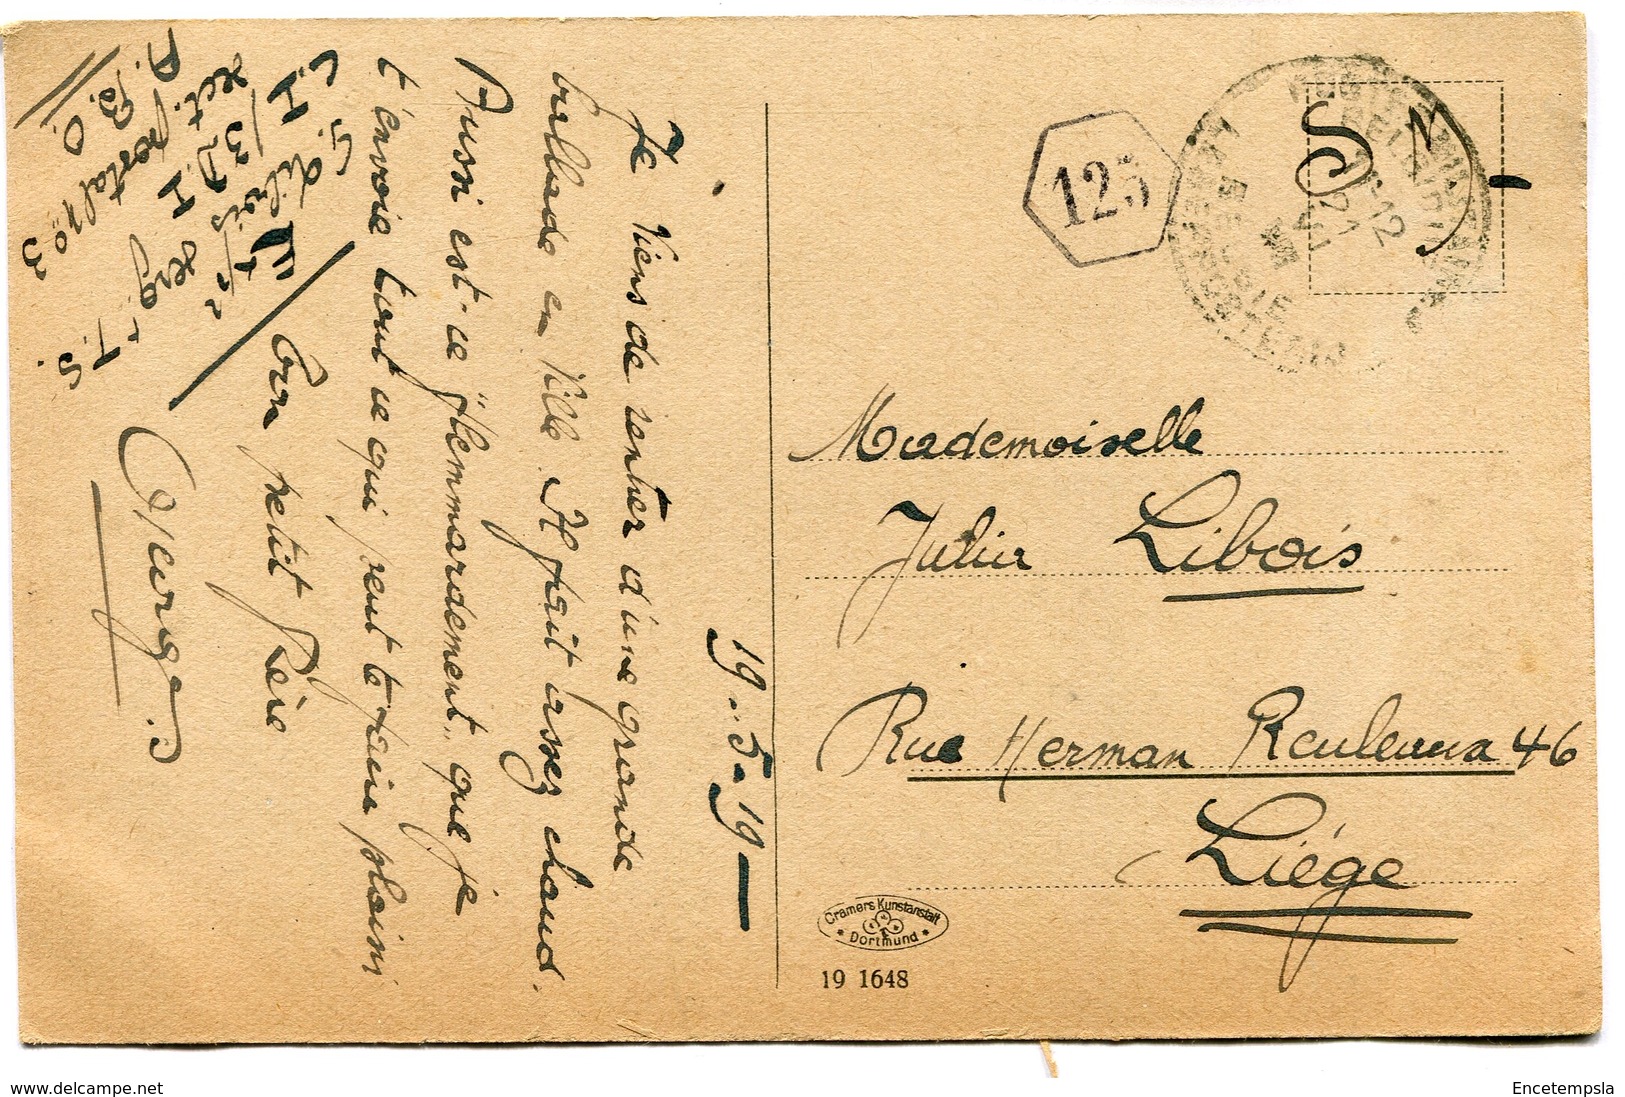 19.5.19
Je viens de rentrer d'une grande
ballade en ville. Il fait assez chaud.
Aussi est-ce "flemmardement" que je
t'envoie tout ce qui peut te faire plaisir
Ton petit frère
G. Libois
C.H. 13 D.A.
Sect. postal 103
A.B.O.
125
S M
Mademoiselle
Julia Libois
Rue Herman Reuleaux 46
Liége
Cramers Kunstanstalt
* Dortmund *
19 1648
www.delcampe.net
Encetempsla